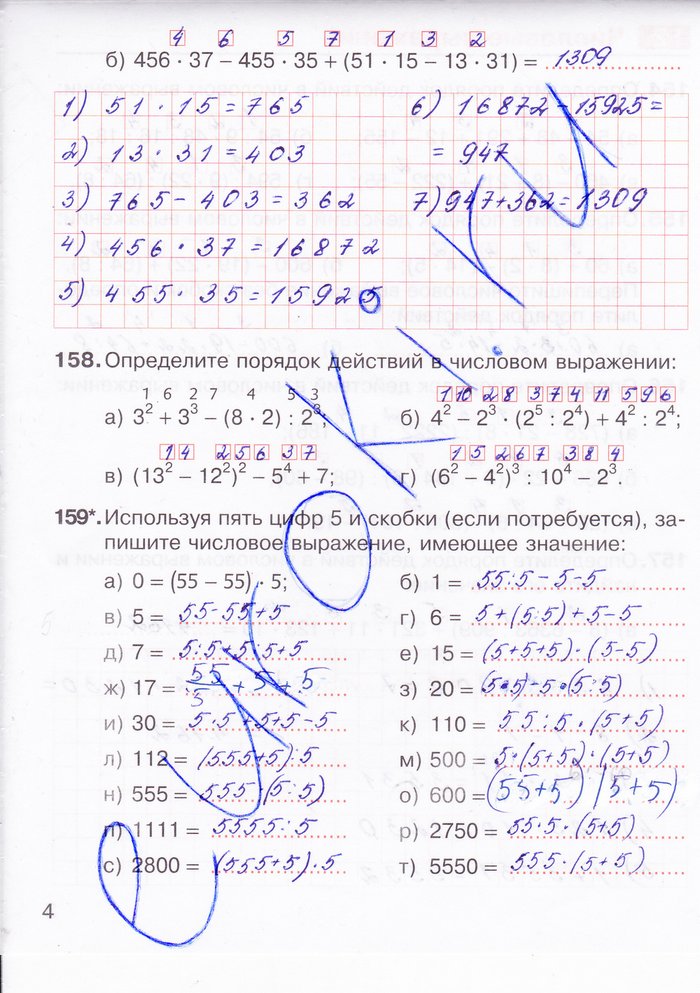 4 6 5 7 1 3 2
б) 456 · 37 – 455 · 35 + (51 · 15 – 13 · 31) = 1309
1) 51 · 15 = 765
2) 13 · 31 = 403
3) 765 - 403 = 362
4) 456 · 37 = 16872
5) 455 · 35 = 15925
6) 16872 - 15925 =
= 947
7) 947+362=1309
158. Определите порядок действий в числовом выражении:
1 6 2 7 4 5 3
а) 3² + 3³ – (8 · 2) : 2³;
1 10 2 8 3 7 4 11 5 9 6
б) 4² – 2³ · (2⁵ : 2⁴) + 4² : 2⁴;
1 4 2 5 6 3 7
в) (13² – 12²)² – 5⁴ + 7;
1 5 2 6 7 3 8 4
г) (6² – 4²)³ : 10⁴ – 2³.
159*. Используя пять цифр 5 и скобки (если потребуется), за-
пишите числовое выражение, имеющее значение:
а) 0 = (55 – 55) · 5;
б) 1 = 55:5-5-5
в) 5 = 55-55+5
г) 6 = 5+(5:5)+5-5
д) 7 = 5:5+5:5+5
е) 15 = (5+5+5)·(5-5)
ж) 17 = 55/5 + 5 + 5
з) 20 = (5·5)-5·(5:5)
и) 30 = 5·5+5+5-5
к) 110 = 55:5·(5+5)
л) 112 = (555+5):5
м) 500 = 5·(5+5)·(5+5)
н) 555 = 555·(5:5)
о) 600 = (55+5)(5+5)
п) 1111 = 5555:5
р) 2750 = 55·5·(5+5)
с) 2800 = (555+5)·5
т) 5550 = 555·(5+5)
4